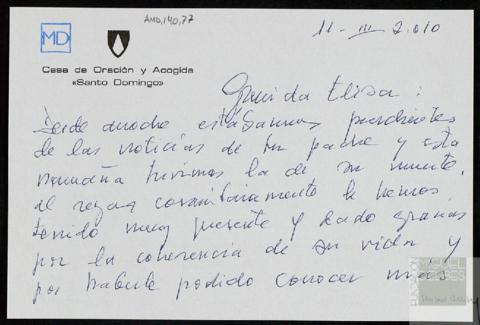 AMD, 140, 77
MD
Casa de Oración y Acogida
«Santo Domingo»
11-III-2.010
Querida Elisa:
Desde anoche estábamos pendientes
de las noticias de tu padre y esta
mañana tuvimos la de su muerte.
al rezar comunitariamente le hemos
tenido muy presente y dado gracias
por la coherencia de su vida y
por haberle podido conocer más